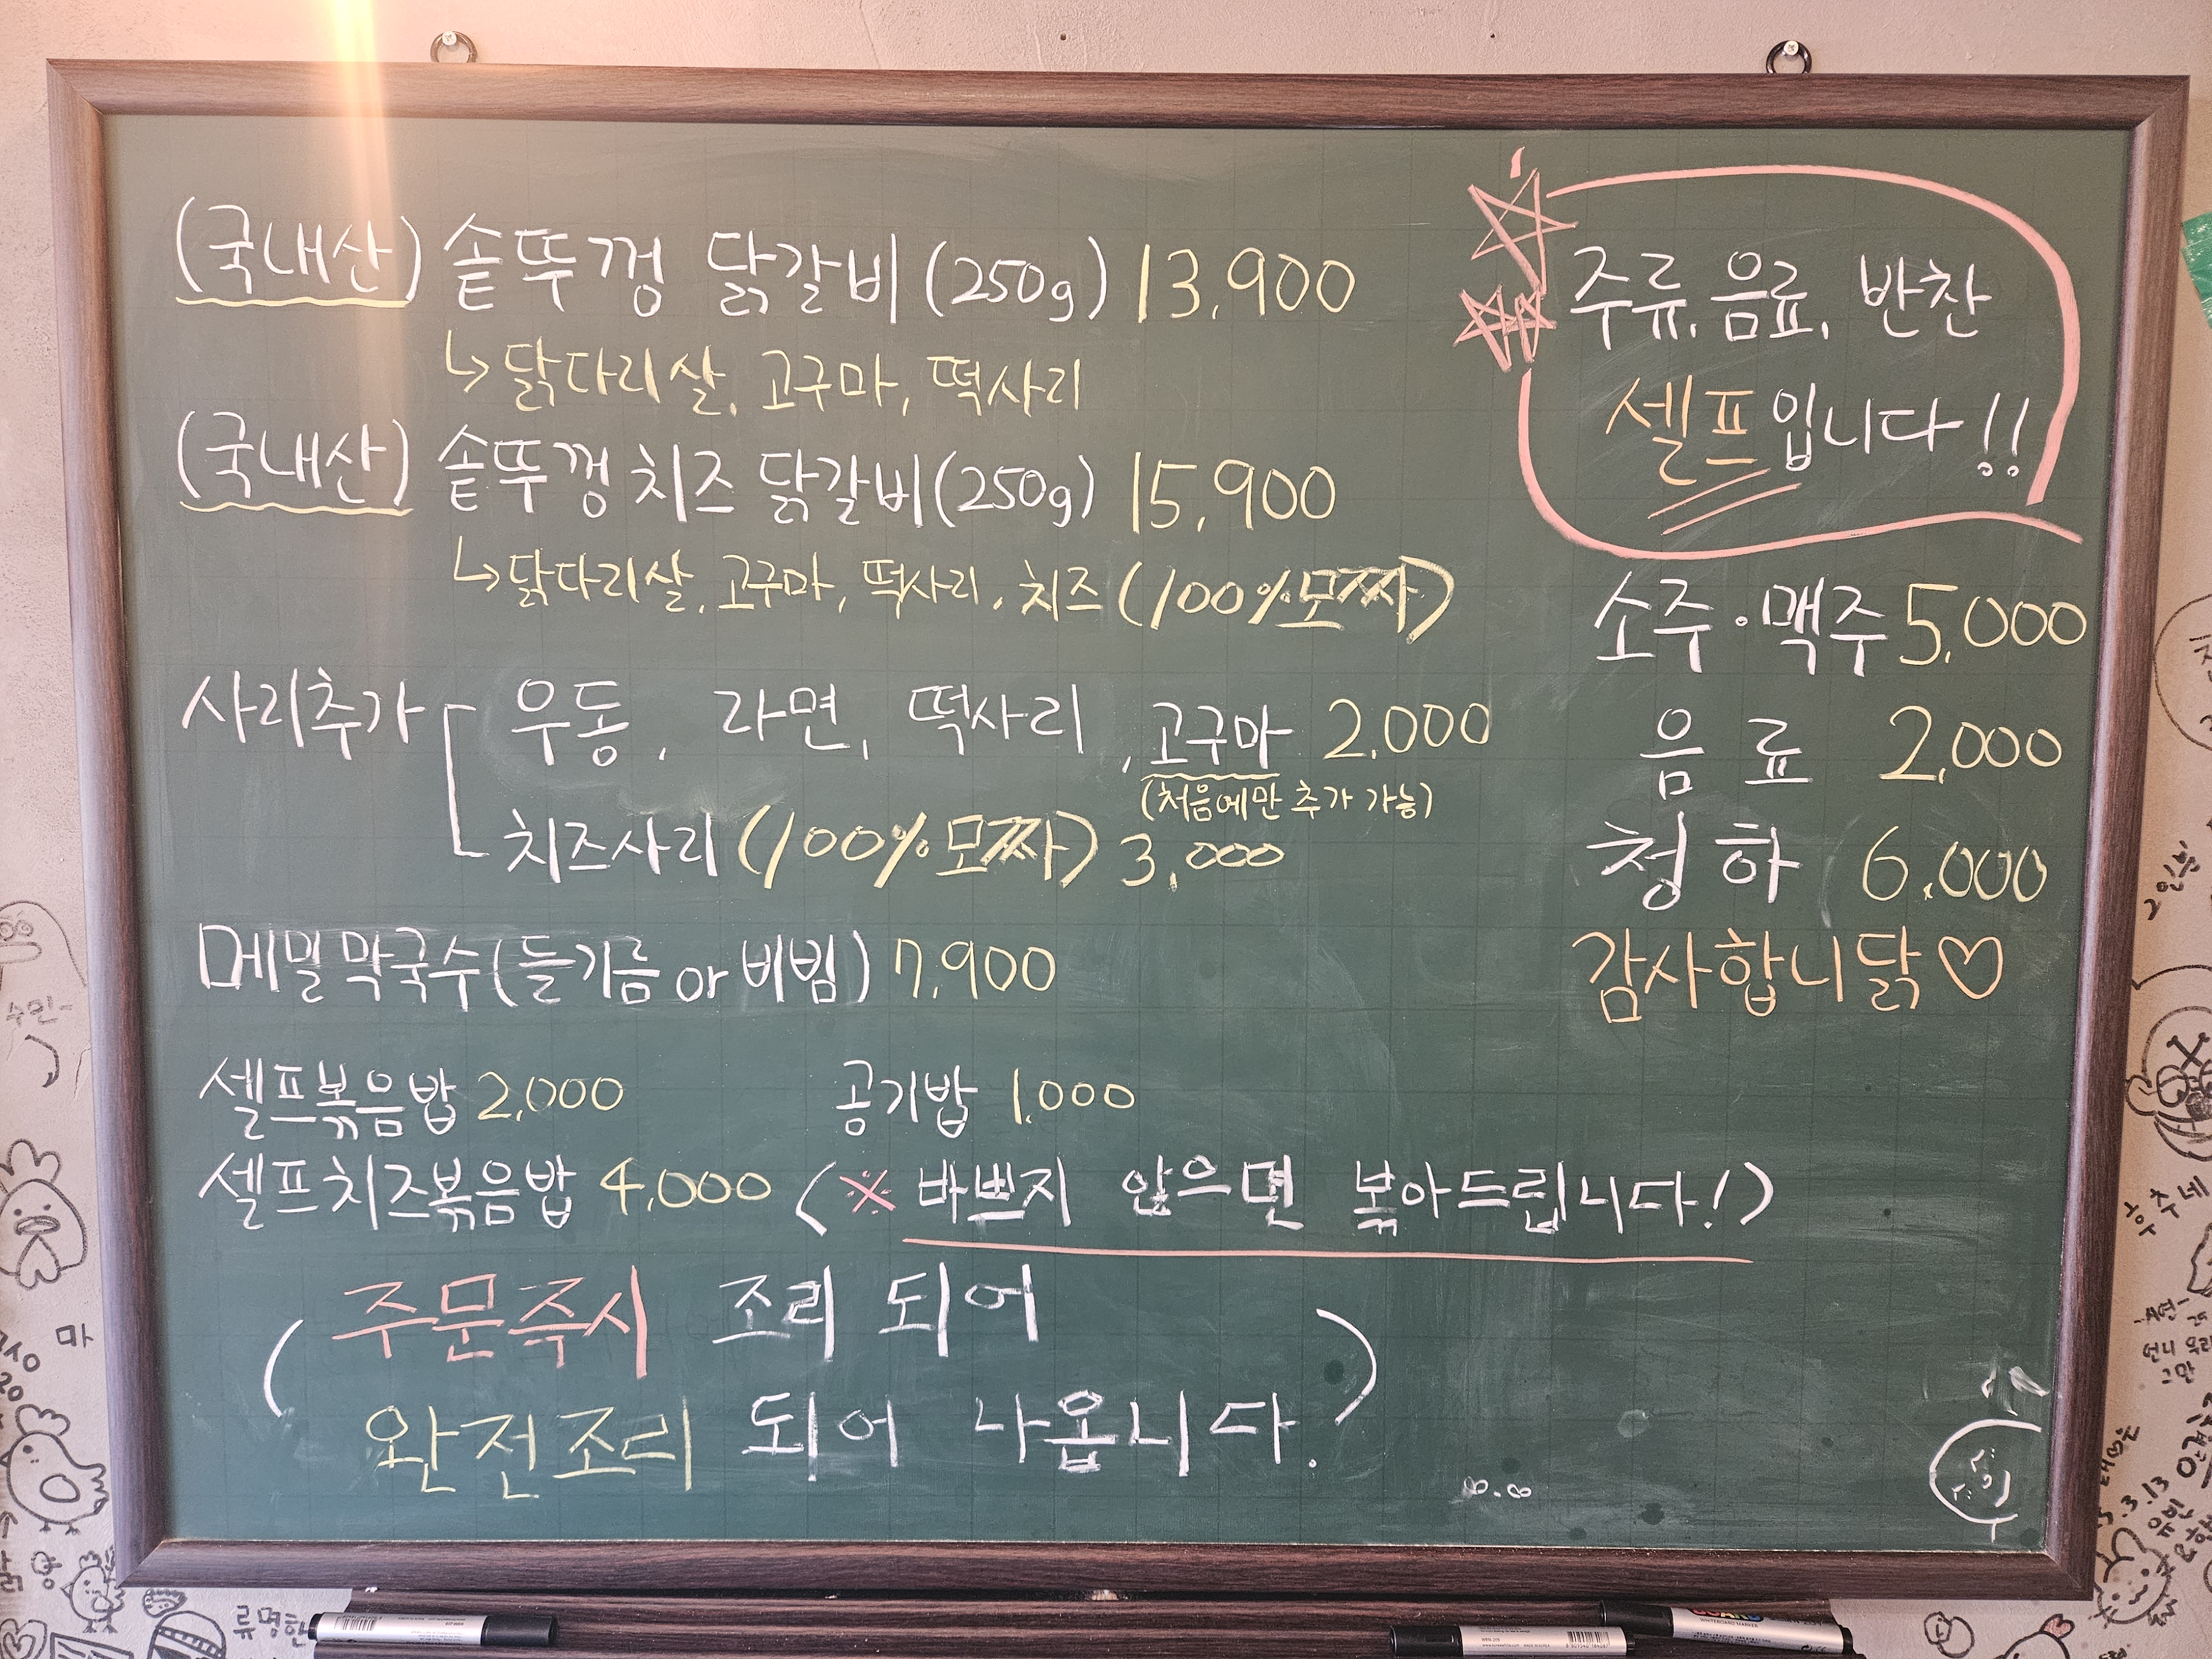 (국내산) 솥뚜껑 닭갈비 (250g) 13,900
↳ 닭다리살, 고구마, 떡사리
(국내산) 솥뚜껑 치즈 닭갈비 (250g) 15,900
↳ 닭다리살, 고구마, 떡사리, 치즈 (100% 모짜)
사리추가 [ 우동, 라면, 떡사리, 고구마 2,000
(처음에만 추가 가능)
치즈사리 (100% 모짜) 3,000
메밀막국수 (들기름 or 비빔) 7,900
셀프볶음밥 2,000 공기밥 1,000
셀프치즈볶음밥 4,000 (※ 바쁘지 않으면 볶아드립니다!)
(주문즉시 조리 되어
완전조리 되어 나옵니다.)
주류, 음료, 반찬
셀프입니다!!
소주·맥주 5,000
음료 2,000
청하 6,000
감사합니닭♡
수민-
마
류명한
2인분